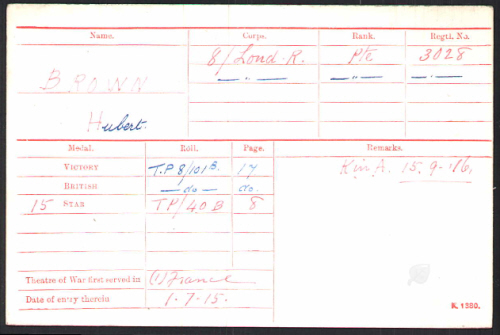 Name. Corps. Rank. Regtl. No.
8/Lond. R. Pte 3028
BROWN — " — — " — — " —
Hubert.
Medal. Roll. Page. Remarks.
VICTORY T.P 8/101B. 17 K in A. 15.9-16.
BRITISH — do — do.
15 STAR TP/40B 8
Theatre of War first served in (1) France
Date of entry therein 1-7-15.
K. 1380.